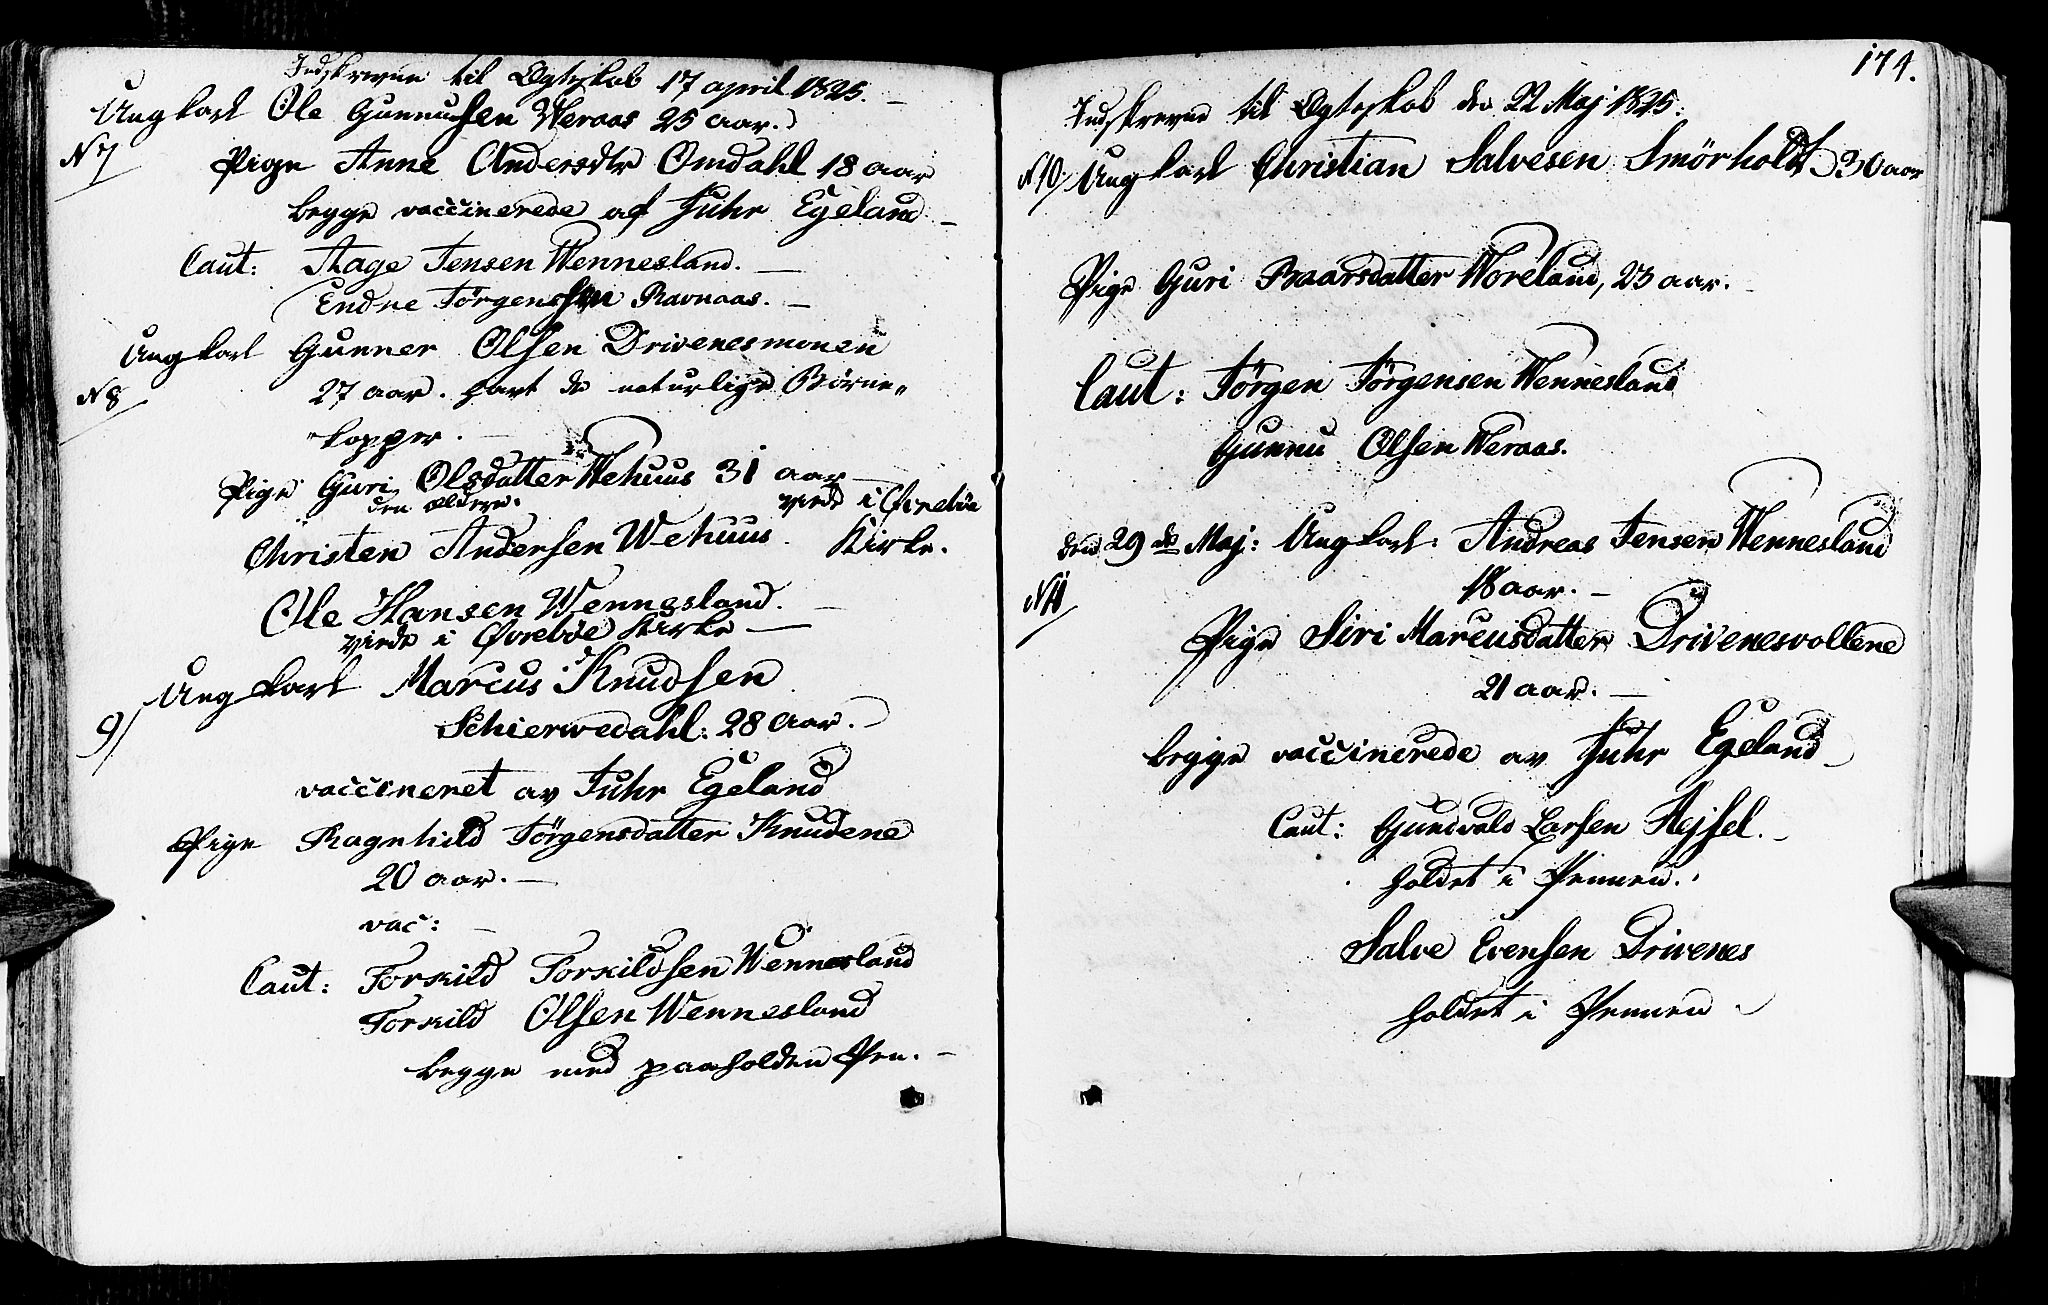 Indskrevne til Ægteskab 17 april 1825. –
Ungkarl Ole Gunnusen Weraas 25 aar.
N 7/
Pige Anne Andersdtr Omdahl 18 aar
begge vaccinerede af Fuhr Egeland. –
Caut: Aage Jensen Wennesland. –
Endre Jörgensen Ravnaas. –
Ungkarl Gunner Olsen Drivenesmonen
N 8/
27 aar. havt de naturlige Börne„
„kopper. –
Pige Guri Olsdatter Wehuus 31 aar
den ældere. viede i Øvrebøe
Christen Andersen Wehuus. Kirke.
Ole Hansen Wennesland. –
viede i Øvrebøe Kirke –
Ungkarl Marcus Knudsen
9/
Schierwedahl: 28 aar.
vaccineret av Fuhr Egeland
Pige Ragnhild Jörgensdatter Knudene
20 aar. –
vac: –
Caut: Torkild Torkildsen Wennesland
Torkild Olsen Wennesland
begge med paaholden Pen. –
174.
Indskrevne til Ægteskab den 22 Maj 1825:
N 10/ Ungkarl Christian Salvesen Smörholdt 30 aar
Pige Guri Baarsdatter Woreland, 23 aar. –
Caut: Jörgen Jörgensen Wennesland
Gunnu Olsen Weraas.
den 29 de Maj: Ungkarl Andreas Jensen Wennesland
18 aar. –
N 11/
Pige Siri Marcusdatter Drivenesvollene
21 aar. –
begge vaccinerede av Fuhr Egeland –
Caut: Gundvald Larsen Hejsel. –
holdet i Pennen.
Salve Evensen Drivenes
holdet i Pennen